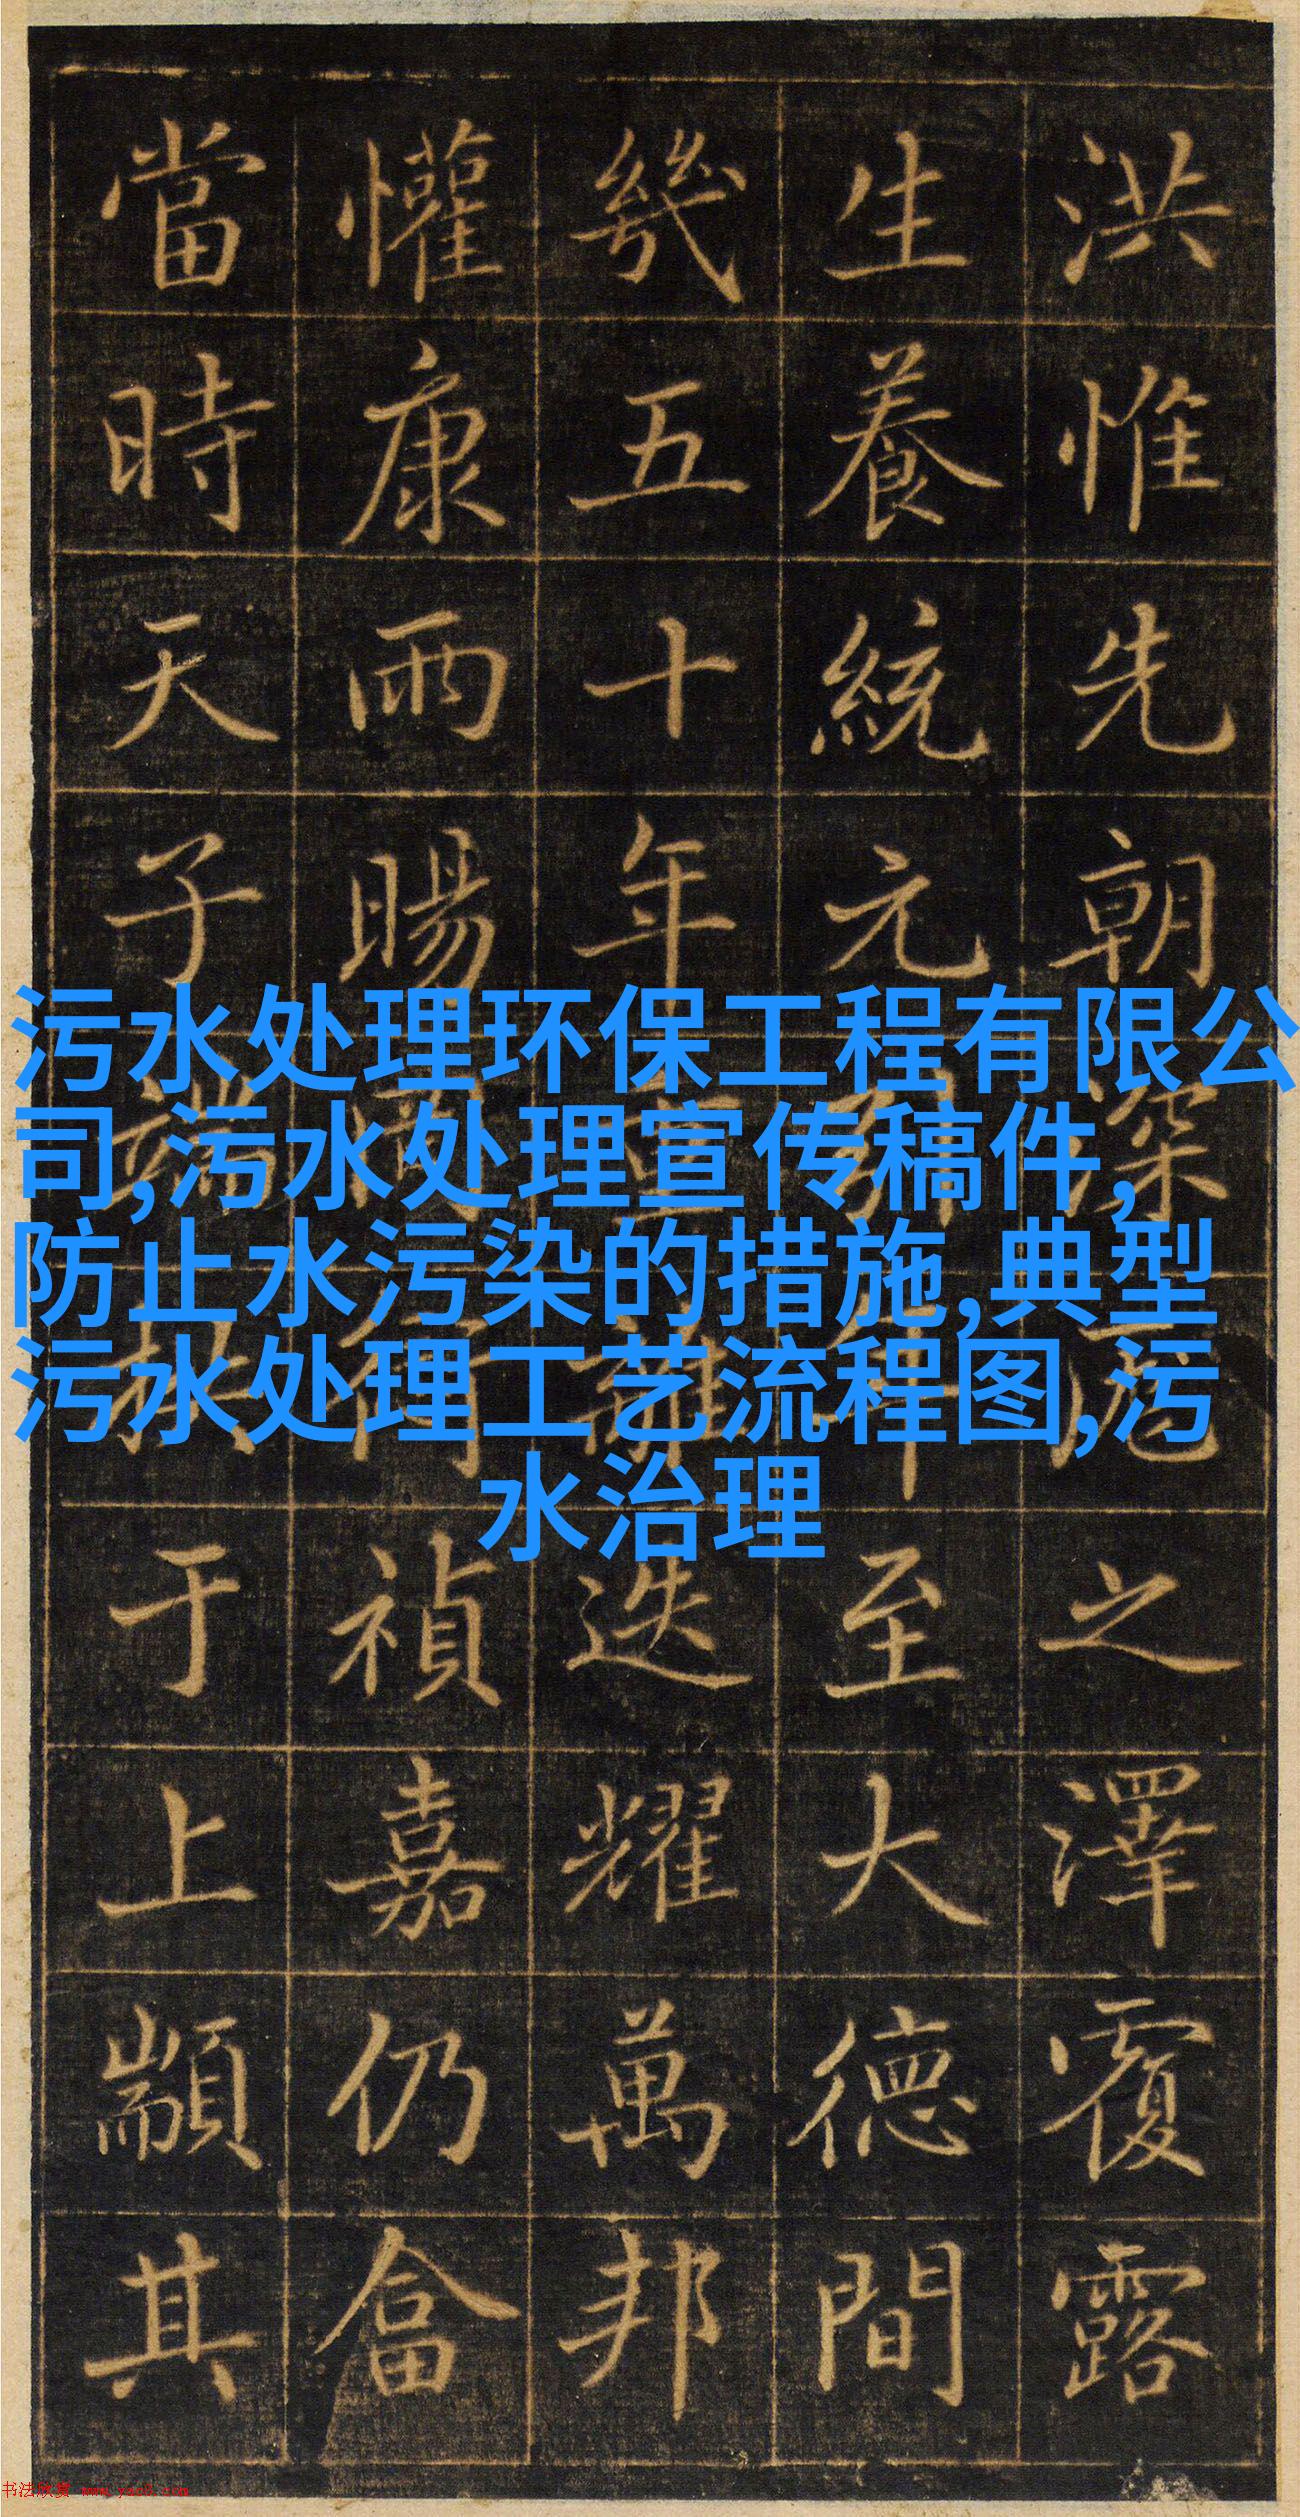 洪惟先朝深之澤覆露
生養統元至大德間
幾五十年重離迭耀萬邦
懽康雨暘禎嘉仍畬
當時天子端拱于上顒其
污水处理环保工程有限公
司,污水处理宣传稿件,
防止水污染的措施,典型
污水处理工艺流程图,污
水治理
书法欣赏 www.yac8.com